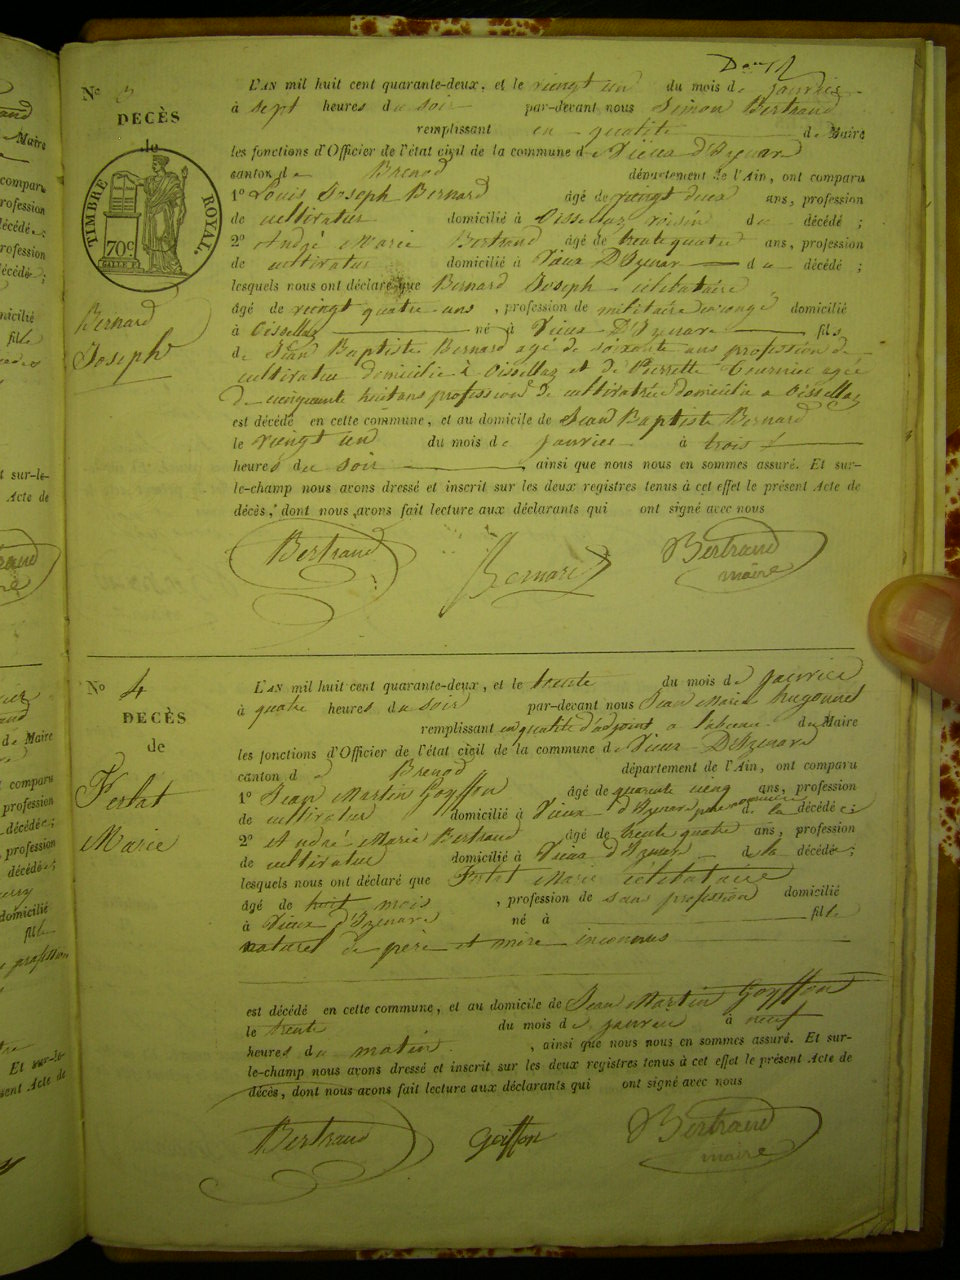 N° 3
DECÈS
de
TIMBRE ROYAL.
70c
Bernard
Joseph
L'AN mil huit cent quarante-deux, et le vingt un du mois de janvier
à sept heures du soir par-devant nous Simon Bertrand
remplissant en qualité de Maire
les fonctions d'Officier de l'état civil de la commune de Vieux d'Izenave
canton de Brenod département de l'Ain, ont comparu
1° Louis Joseph Bernard âgé de vingt deux ans, profession
de cultivateur domicilié à Oisselaz voisin du décédé;
2° André Marie Bertrand âgé de trente quatre ans, profession
de cultivateur domicilié à Vieux D'Izenave du décédé;
lesquels nous ont déclaré que Bernard Joseph célibataire
âgé de vingt quatre ans, profession de militaire en congé domicilié
à Oisselaz né à Vieux D'Izenave fils
de Jean Baptiste Bernard agé de soixante ans profession de
cultivateur domicilié à Oisselaz et de Pierrette agée
de cinquante huit ans profession de cultivatrice domicilié a Oisselaz
est décédé en cette commune, et au domicile de Jean Baptiste Bernard
le vingt un du mois de janvier à trois
heures du soir, ainsi que nous nous en sommes assuré. Et sur-
le-champ nous avons dressé et inscrit sur les deux registres tenus à cet effet le présent Acte de
décès, dont nous avons fait lecture aux déclarants qui ont signé avec nous
Bertrand Bernard Bertrand
maire
N° 4
DECÈS
de
Ferlat
Marie
L'AN mil huit cent quarante-deux, et le trente du mois de janvier
à quatre heures du soir par-devant nous Jean Marie Hugonnet
remplissant en qualité d'adjoint a du Maire
les fonctions d'Officier de l'état civil de la commune de Vieux D'Izenave
canton de Brenod département de l'Ain, ont comparu
1° Jean Martin Goyffon âgé de quarante cinq ans, profession
de cultivateur domicilié à Vieux d'Izenave père nourricier de la décédée;
2° André Marie Bertrand âgé de trente quatre ans, profession
de cultivateur domicilié à Vieux d'Izenave de la décédée;
lesquels nous ont déclaré que Ferlat Marie célibataire
âgé de huit mois, profession de sans profession domicilié
à Vieux d'Izenave né à fille
naturel de père et mère inconnus
est décédé en cette commune, et au domicile de Jean Martin Goyffon
le trente du mois de janvier à neuf
heures du matin, ainsi que nous nous en sommes assuré. Et sur-
le-champ nous avons dressé et inscrit sur les deux registres tenus à cet effet le présent Acte de
décès, dont nous avons fait lecture aux déclarants qui ont signé avec nous
Bertrand Goiffon Bertrand
maire